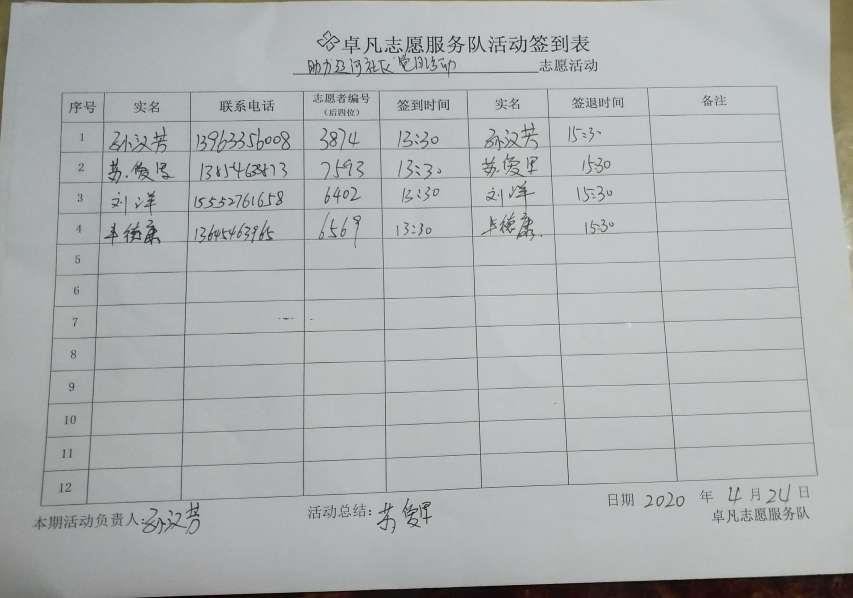 卓凡志愿服务队活动签到表
助力 社区 活动 志愿活动
序号 实名 联系电话 志愿者编号（后四位） 签到时间 实名 签退时间 备注
1 孙汉芳 13963356008 3874 13:30 孙汉芳 15:30
2 苏爱里 7593 13:30 苏爱里 15:30
3 刘洋 15552761658 6402 13:30 刘洋 15:30
4 13645463965 6569 13:30 15:30
5
6
7
8
9
10
11
12
本期活动负责人:孙汉芳 活动总结: 苏爱里 日期 2020 年 4 月 24 日
卓凡志愿服务队